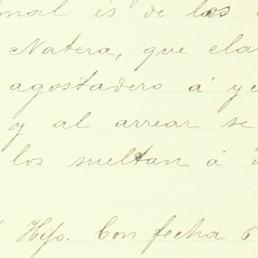 mal és de los
Natera, que
agostadero á
y al arrear se
los sueltan á
Hip. Con fecha 6